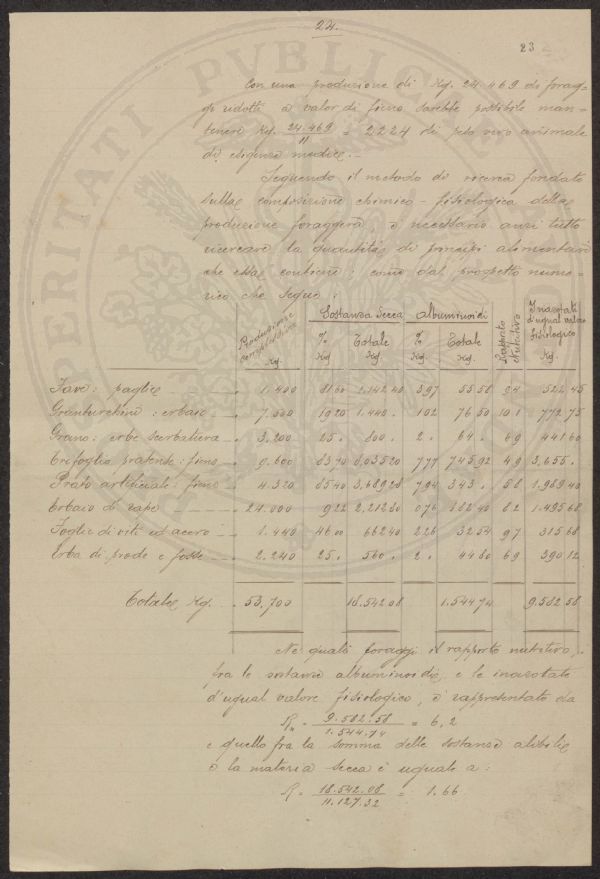 24.
23
Con una produzione di Kg. 24.469 di forag-
gi ridotti a valor di fieno sarebbe possibile man-
tenere Kg. 24.469 / 11 = 2224 di peso vivo animale
di esigenze medie. -
Seguendo il metodo di ricerca fondato
sulla composizione chimico-fisiologica della
produzione foraggera, è necessario anzi tutto
ricercare la quantità di principi alimentari
che essa contiene; come dal prospetto nume-
rico che segue:
Produzione complessiva Kg. | Sostanza secca % Kg. | Totale Kg. | Albuminoidi % Kg. | Totale Kg. | Rapporto nutritivo | Inazotati d'ugual valore fisiologico Kg.
Fave: paglie 1.400 81 60 1.142 40 3 97 55 58 9 4 522 45
Granturchino: erbaio 7.500 19 20 1.440 . 1 02 76 50 10 1 772 75
Grano: erbe 3.200 25 . 800 . 2 . 64 . 6 9 441 60
Trifoglio pratense: fieno 9.600 83 70 8,035 20 7 77 745 92 4 9 3,655 .
Prato artificiale: fieno 4.320 85 40 3,689 28 7 94 343 . 5 8 1.989 40
Erbaio di rape 24.000 9 22 2,212 80 0 76 182 40 8 2 1.495 68
Foglie di viti ed acero 1.440 46 00 662 40 2 26 32 54 9 7 315 68
Erba di prode e fosse 2.240 25 . 560 . 2 . 44 80 6 9 390 12
Totale Kg. 53,700 18.542 08 1.544 74 9.582 58
Ne' quali foraggi il rapporto nutritivo,
fra le sostanze albuminoidi, e le inazotate
d'ugual valore fisiologico, è rappresentato da
Rn = 9.582.58 / 1.544.74 = 6,2
e quello fra la somma delle sostanze alibili
e la materia secca è uguale a:
R = 18.542.08 / 11.127.32 = 1.66
PERITATI PVBLICAE